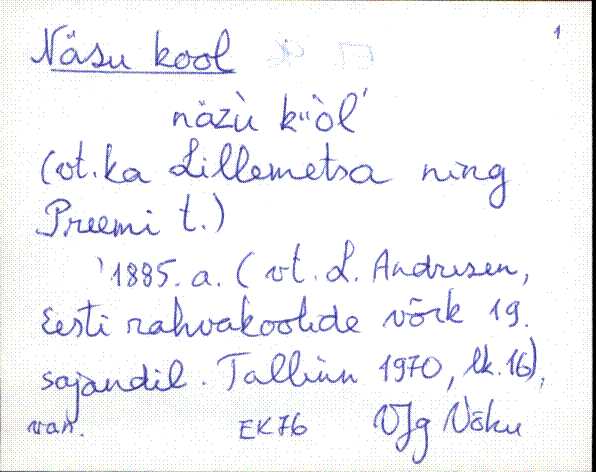 1
Näsu kool
näzù k"òl'
(vt. ka Lillemetsa ning
Preemi t.)
'1885. a. (vt. L. Andresen,
Eesti rahvakoolide võrk 19.
sajandil. Tallinn 1970, lk. 16),
van. EK76 VJg Nõku